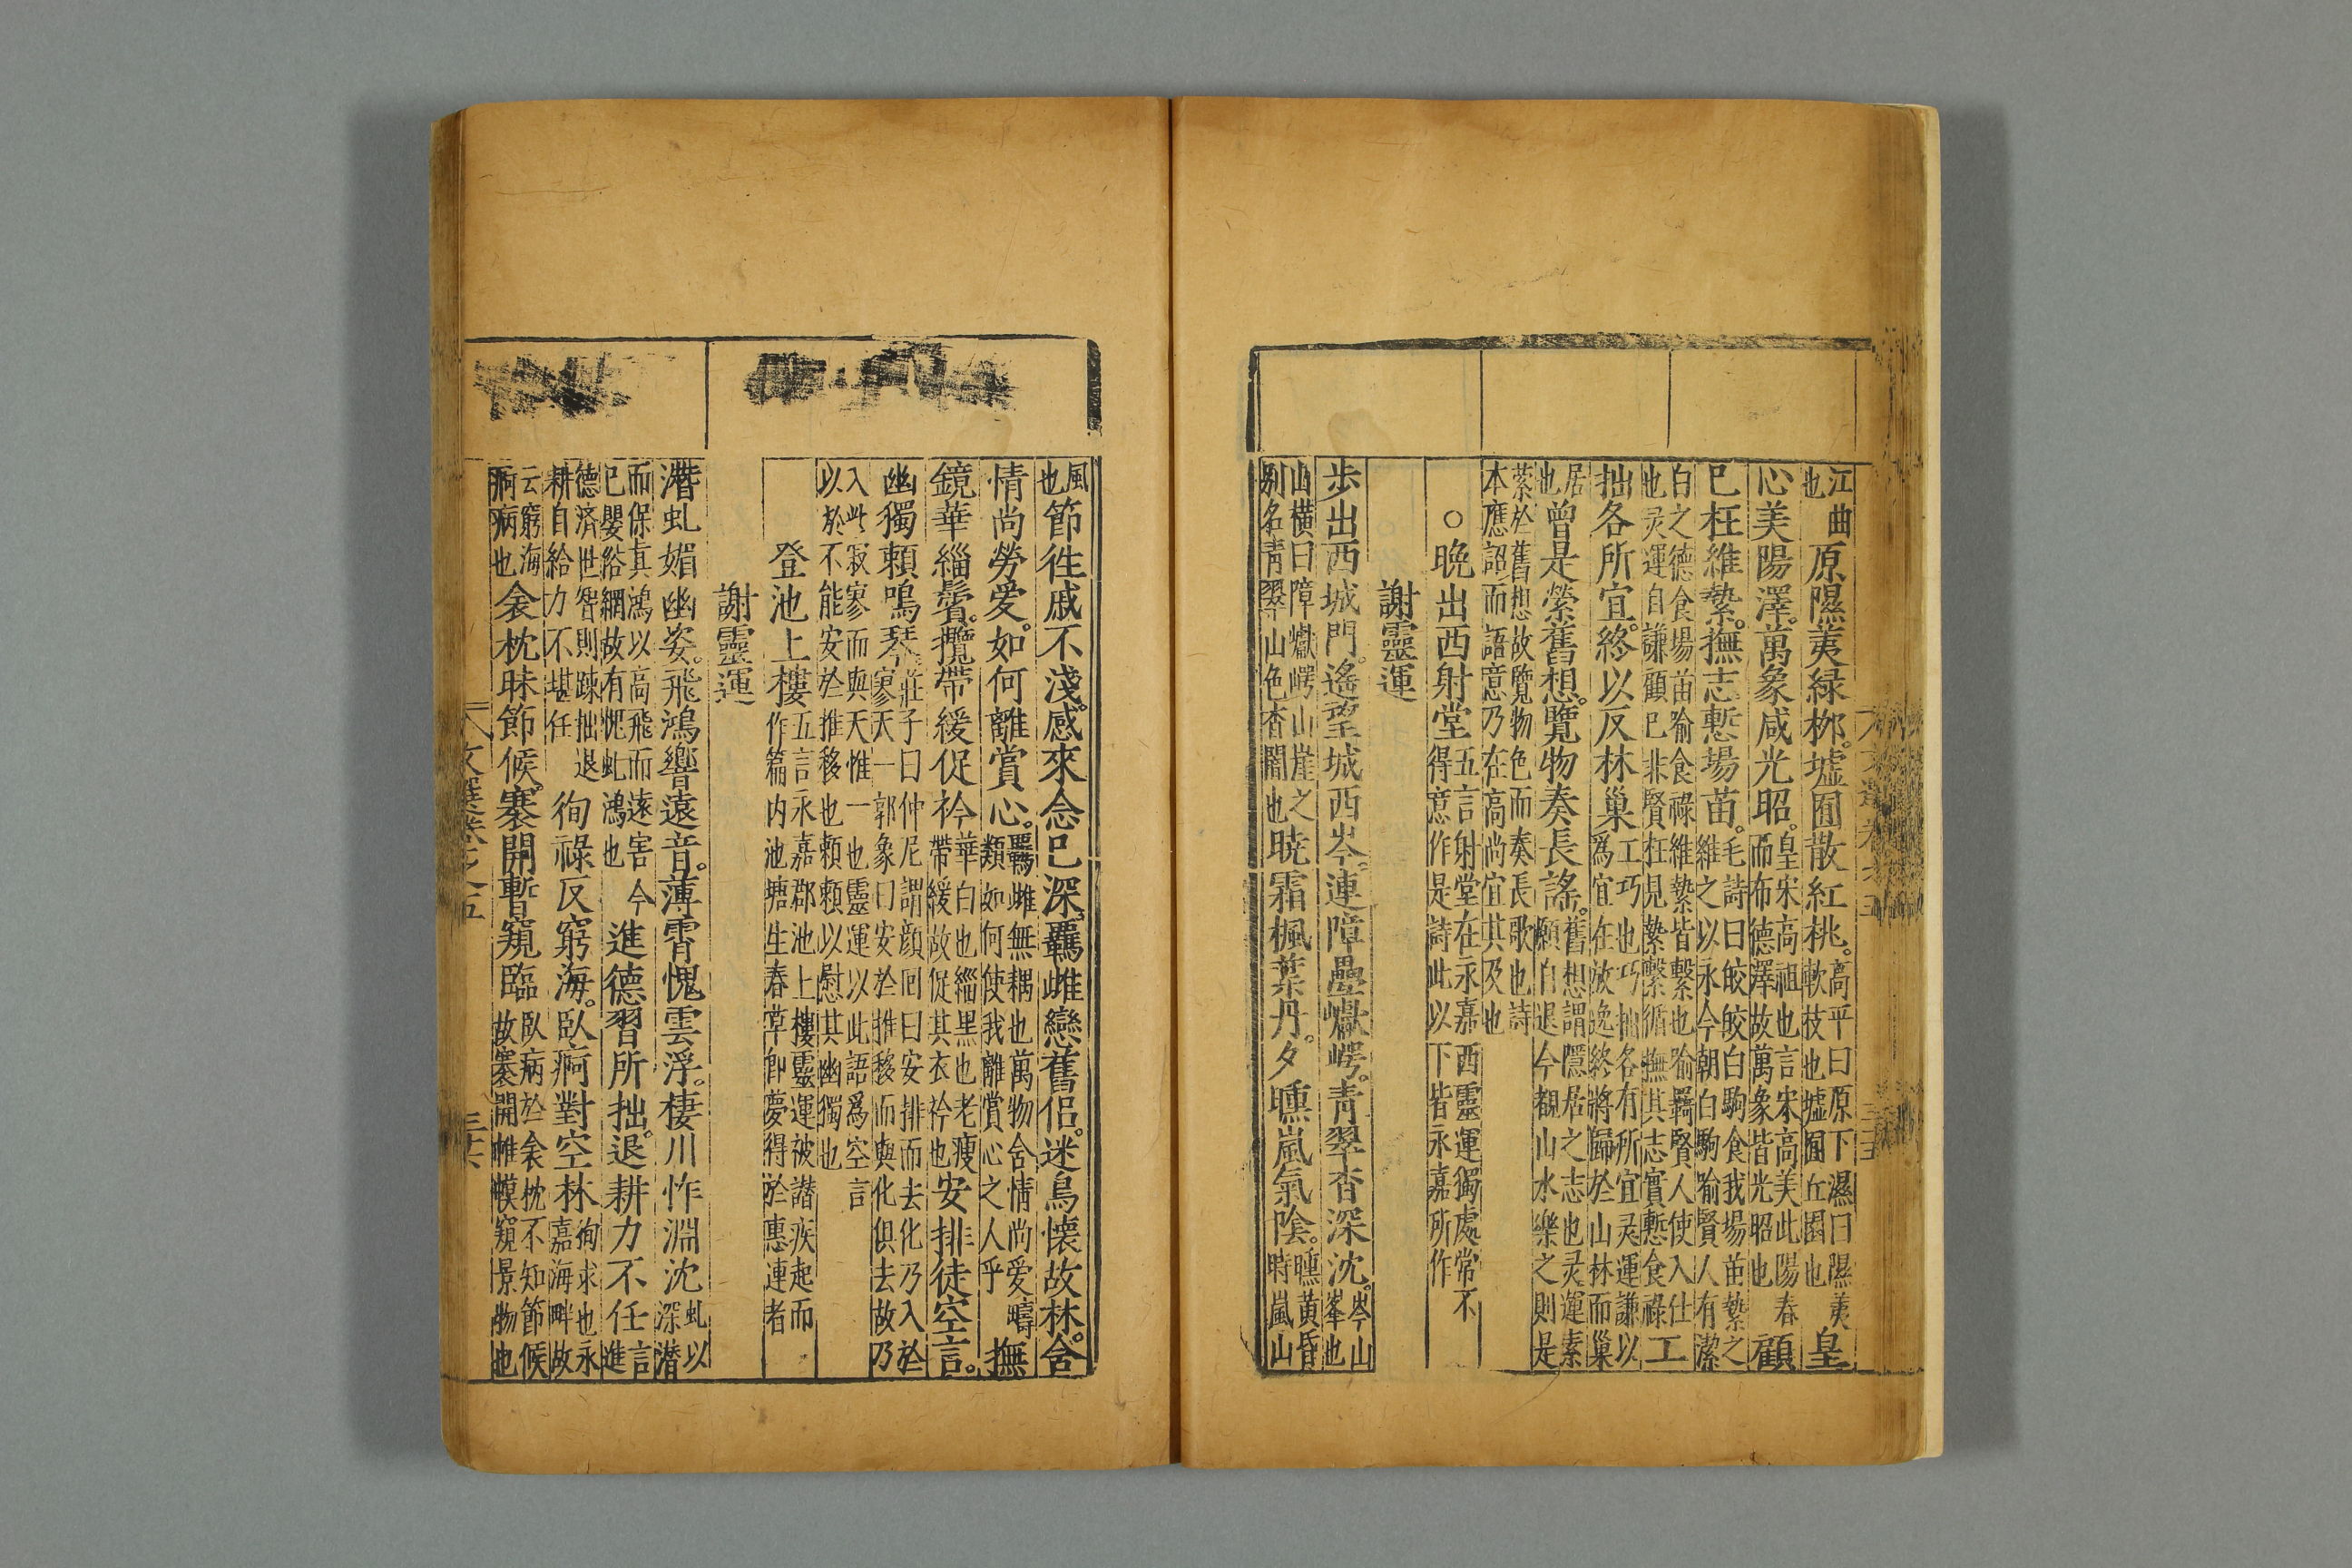 江曲也原隰荑緑栁。墟囿散紅桃。高平曰原下濕曰隰荑軟枝也墟囿丘園也皇
心美陽澤。萬象咸光昭。皇宋高祖也言宋高美此陽春而布德澤故萬象皆光昭也顧
已枉維縶。撫志慙場苗。毛詩曰皎皎白駒食我場苗縶之維之以永今朝白駒喻賢人有潔
白之德食場苗喻食祿維縶皆繫也喻羈賢人使入仕也灵運自謙顧已非賢枉見縶繫循撫其志實慙食祿工
拙各所宜。終以反林巢工巧也巧拙各有所宜灵運謙以爲宜在放逸終將歸於山林而巢
居也曾是縈舊想。覽物奏長謠。舊想謂隱居之志也灵運素願自退今觀山水樂之則是
縈於舊想故覽物色而奏長歌也詩本應詔而語意乃在高尚宜其及也
○晚出西射堂五言射堂在永嘉西靈運獨處常不得意作是詩此以下皆永嘉所作
謝靈運
歩出西城門。遙望城西岑。連障疊巘崿。青翠杳深沈。岑山峯也
山横曰障巘崿山崖之别名青翠山色杳闇也暁霜楓葉丹。夕曛嵐氣陰。曛黃昏時嵐山
風也節徃戚不淺。感來念已深。羈雌戀舊侣。迷鳥懷故林。含
情尚勞愛。如何離賞心。羈雌無耦也萬物含情尚愛疇類如何使我離賞心之人乎撫
鏡華緇鬢。攬帶緩促衿華白也緇黑也老瘦帶緩故促其衣衿也安排徒空言。
幽獨頼鳴琴莊子曰仲尼謂顔囘曰安排而去化乃入於寥天一郭象曰安於推移而與化俱去故乃
入此寂寥而與天惟一也靈運以此語爲空言以於不能安於推移也頼頼以慰其幽獨也
登池上樓五言永嘉郡池上樓靈運被譛疾起而作篇内池塘生春草卽夢得於惠連者
謝靈運
潛虬媚幽姿。飛鴻響遠音。薄霄愧雲浮。棲川怍淵沈虬以深潜
而保真鴻以高飛而遠害今已嬰俗網故有愧虬鴻也進德習所拙。退耕力不任言進
德济世智則踈拙退耕自給力不堪任徇祿反窮海。臥痾對空林徇求也永嘉海畔故
云窮海痾病也衾枕昧節候。褰開暫窺臨臥病於衾枕不知節候故褰開帷幙窺景物也
文選卷之五 三六